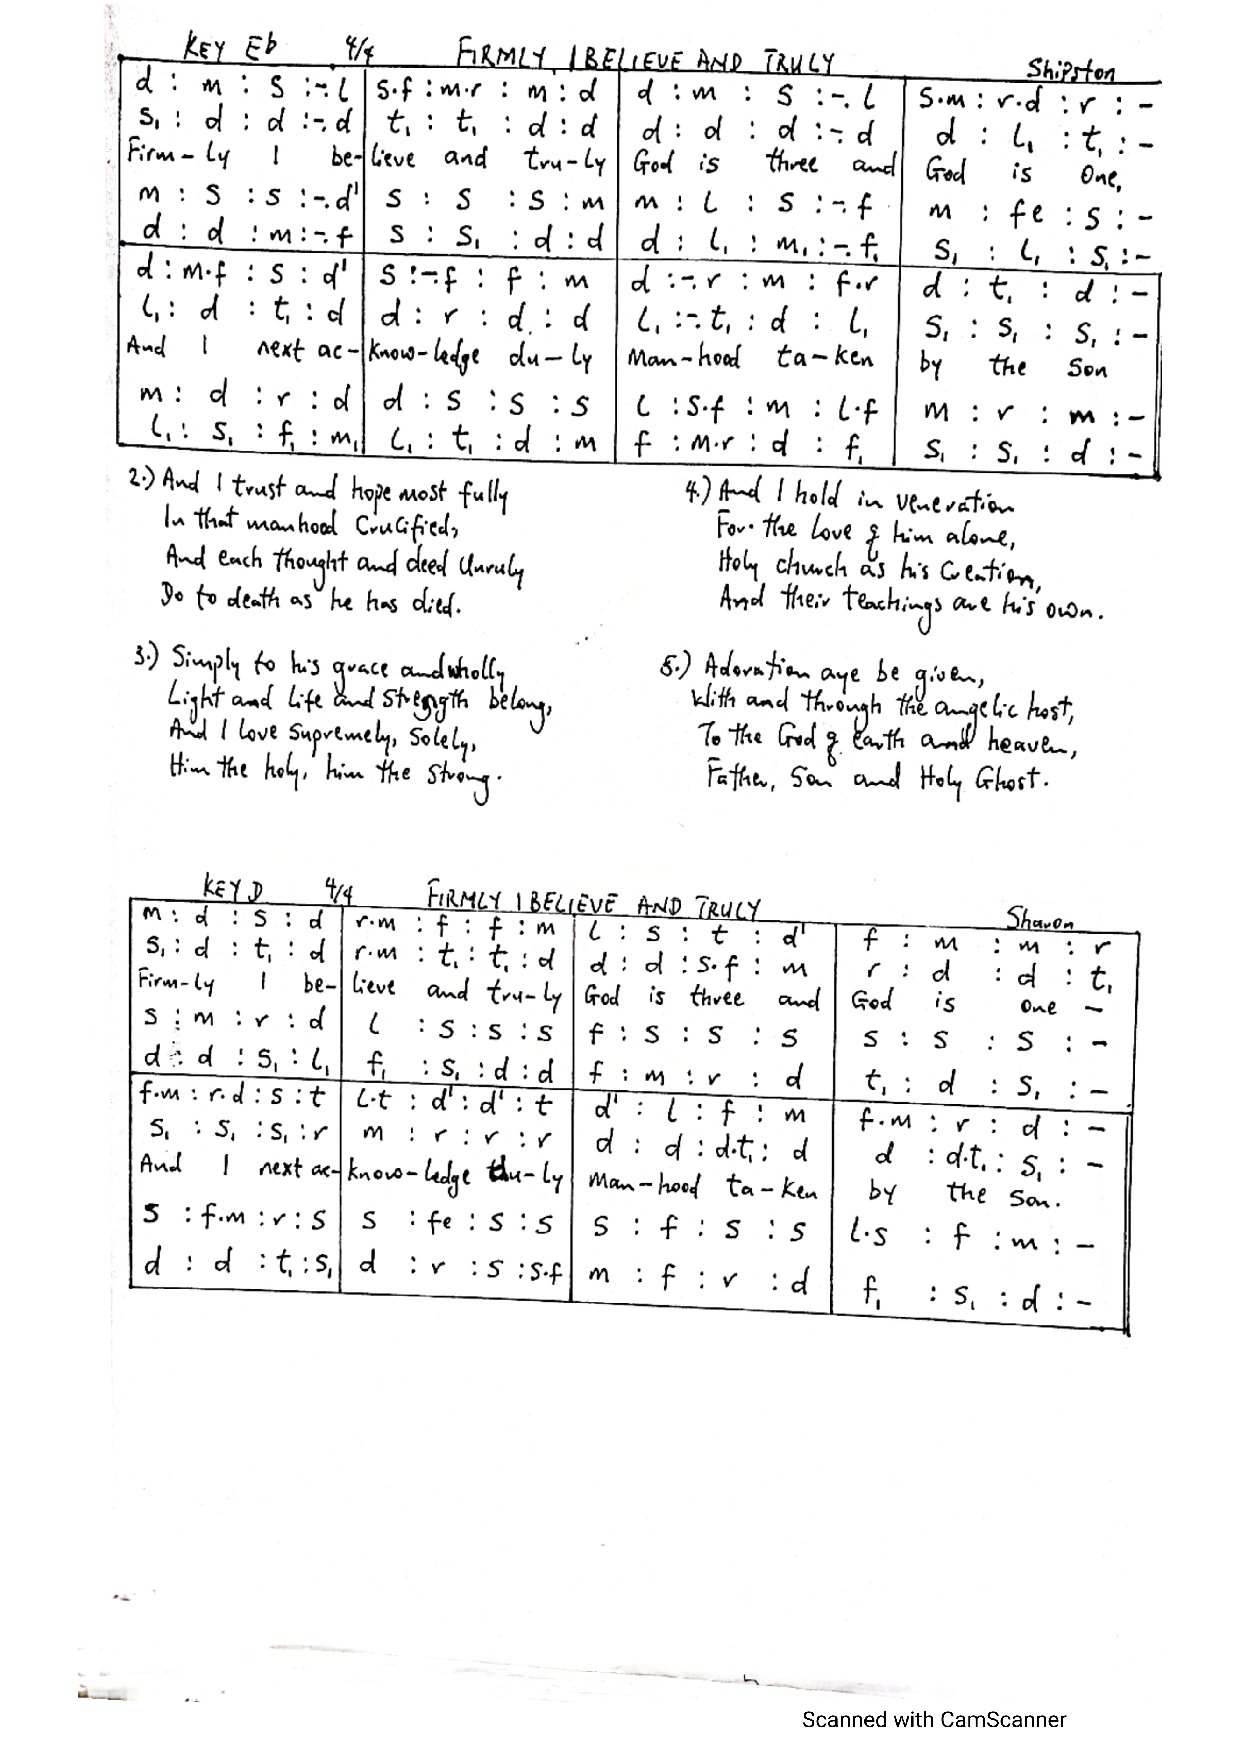 KEY Eb 4/4 FIRMLY I BELIEVE AND TRULY Shipston
d : m : s :-.l | s.f : m.r : m : d | d : m : s :-. l | s.m : r.d : r : -
s₁ : d : d :-.d | t₁ : t₁ : d : d | d : d : d :-. d | d : l₁ : t₁ : -
Firm-ly I be- | lieve and tru-ly | God is three and | God is One,
m : s : s :-.d' | s : s : s : m | m : l : s :-. f | m : fe : s : -
d : d : m :-.f | s : s₁ : d : d | d : l₁ : m₁ :-. f₁ | s₁ : l₁ : s₁ : -
d : m.f : s : d' | s :-.f : f : m | d :-.r : m : f.r | d : t₁ : d : -
l₁ : d : t₁ : d | d : r : d : d | l₁ :-.t₁ : d : l₁ | s₁ : s₁ : s₁ : -
And I next ac- | know-ledge du-ly | Man-hood ta-ken | by the Son
m : d : r : d | d : s : s : s | l : s.f : m : l.f | m : r : m : -
l₁ : s₁ : f₁ : m₁ | l₁ : t₁ : d : m | f : m.r : d : f₁ | s₁ : s₁ : d : -
2.) And I trust and hope most fully
In that manhood Crucified,
And each thought and deed Unruly
Do to death as he has died.
3.) Simply to his grace and wholly
Light and Life and Strength belong,
And I Love Supremely, Solely,
Him the holy, him the Strong.
4.) And I hold in veneration
For the Love of him alone,
Holy church as his Creation,
And their teachings are his own.
5.) Adoration aye be given,
With and through the angelic host,
To the God of Earth and heaven,
Father, Son and Holy Ghost.
KEY D 4/4 FIRMLY I BELIEVE AND TRULY Sharon
m : d : s : d | r.m : f : f : m | l : s : t : d' | f : m : m : r
s₁ : d : t₁ : d | r.m : t₁ : t₁ : d | d : d : s.f : m | r : d : d : t₁
Firm-ly I be- | lieve and tru-ly | God is three and | God is one -
s : m : r : d | l : s : s : s | f : s : s : s | s : s : s : -
d : d : s₁ : l₁ | f₁ : s₁ : d : d | f : m : r : d | t₁ : d : s₁ : -
f.m : r.d : s : t | l.t : d' : d' : t | d' : l : f : m | f.m : r : d : -
s₁ : s₁ : s₁ : r | m : r : r : r | d : d : d.t₁ : d | d : d.t₁ : s₁ : -
And I next ac- | know-ledge du-ly | Man-hood ta-ken | by the Son.
s : f.m : r : s | s : fe : s : s | s : f : s : s | l.s : f : m : -
d : d : t₁ : s₁ | d : r : s : s.f | m : f : r : d | f₁ : s₁ : d : -
Scanned with CamScanner